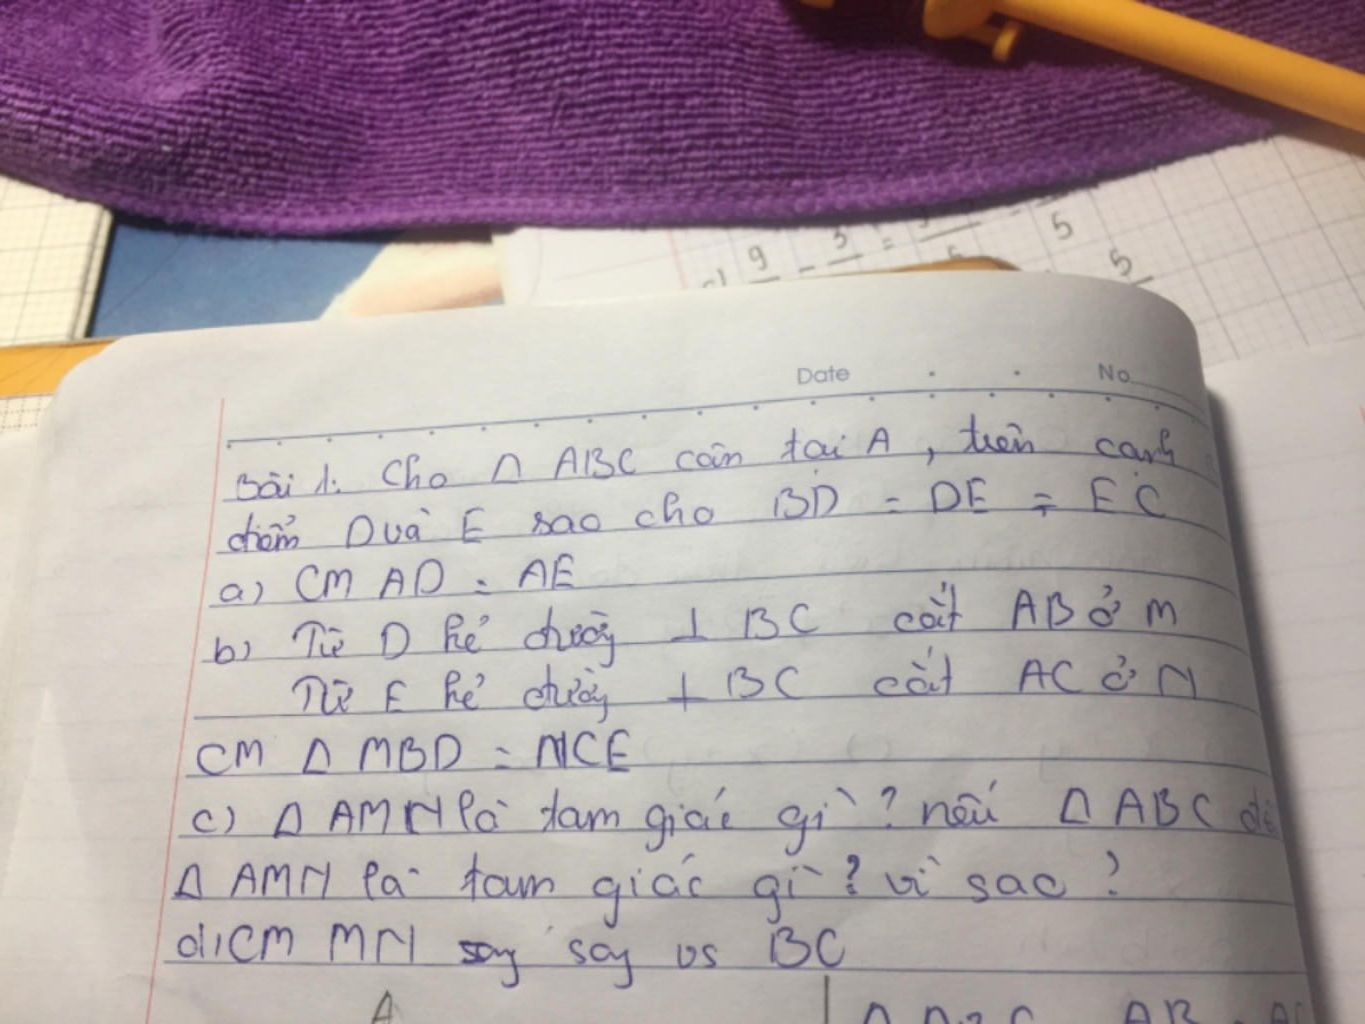 9 - 3 =
5
5
Date No
Bài 1. Cho Δ ABC cân tại A, trên cạnh
điểm D và E sao cho BD = DE = EC
a) CM AD = AE
b) Từ D kẻ đường ⊥ BC cắt AB ở M
Từ E kẻ đường ⊥ BC cắt AC ở N
CM Δ MBD = NCE
c) Δ AMN là tam giác gì? nếu Δ ABC
Δ AMN là tam giác gì? vì sao?
d) CM MN soy vs BC
A
Δ ABC AB = AC